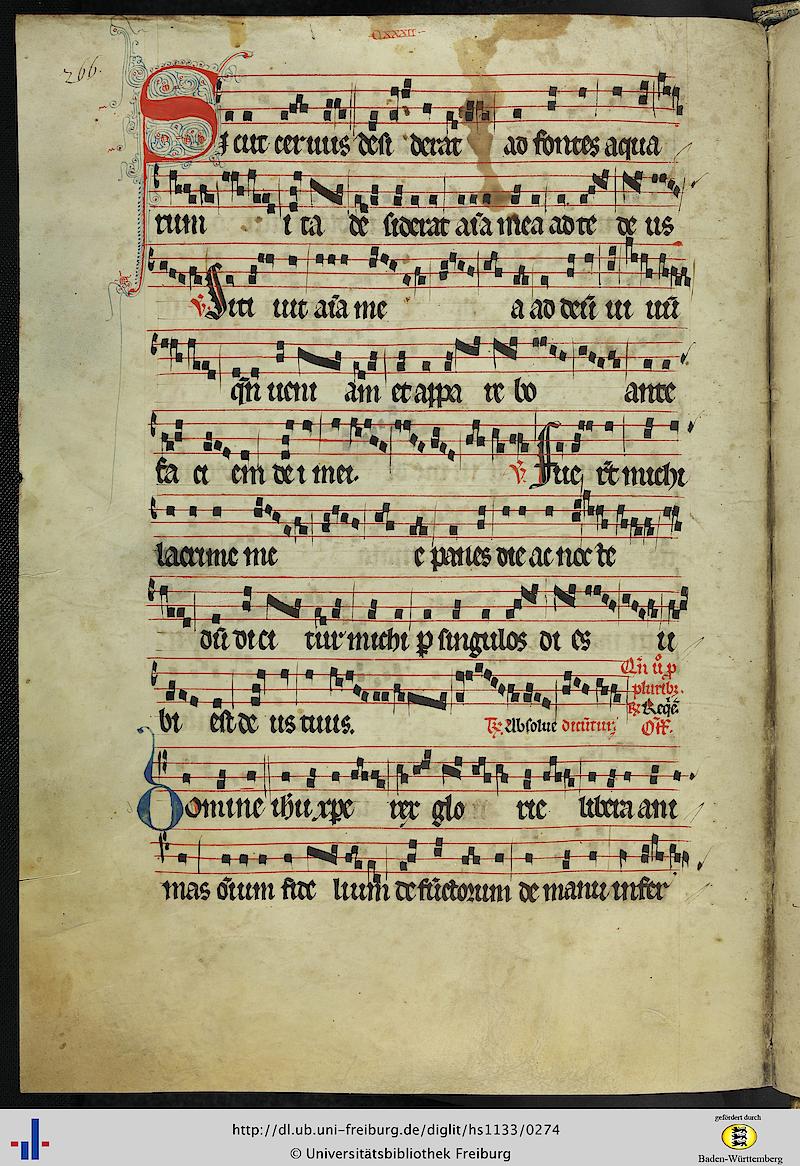 CXXXII
266.
Sicut ceruus desi derat ad fontes aqua
rum i ta de siderat aīa mea ad te de us
℣. Siti uit aīa me a ad deū ui uū
qn̄ ueni am et appa re bo ante
fa ci em de i mei. ℣. Fue rt̄ michi
lacrime me e panes die ac noc te
dū di ci tur michi p singulos di es u
bi est de us tuus.
Qn̄ ū p
pluribꝫ
℞ Absolue dicūtur
Off.
Domine ihū xpe rex glo rie libera ani
mas oīum fide lium defūctorum de manu infer
gefördert durch
http://dl.ub.uni-freiburg.de/diglit/hs1133/0274
© Universitätsbibliothek Freiburg
Baden-Württemberg